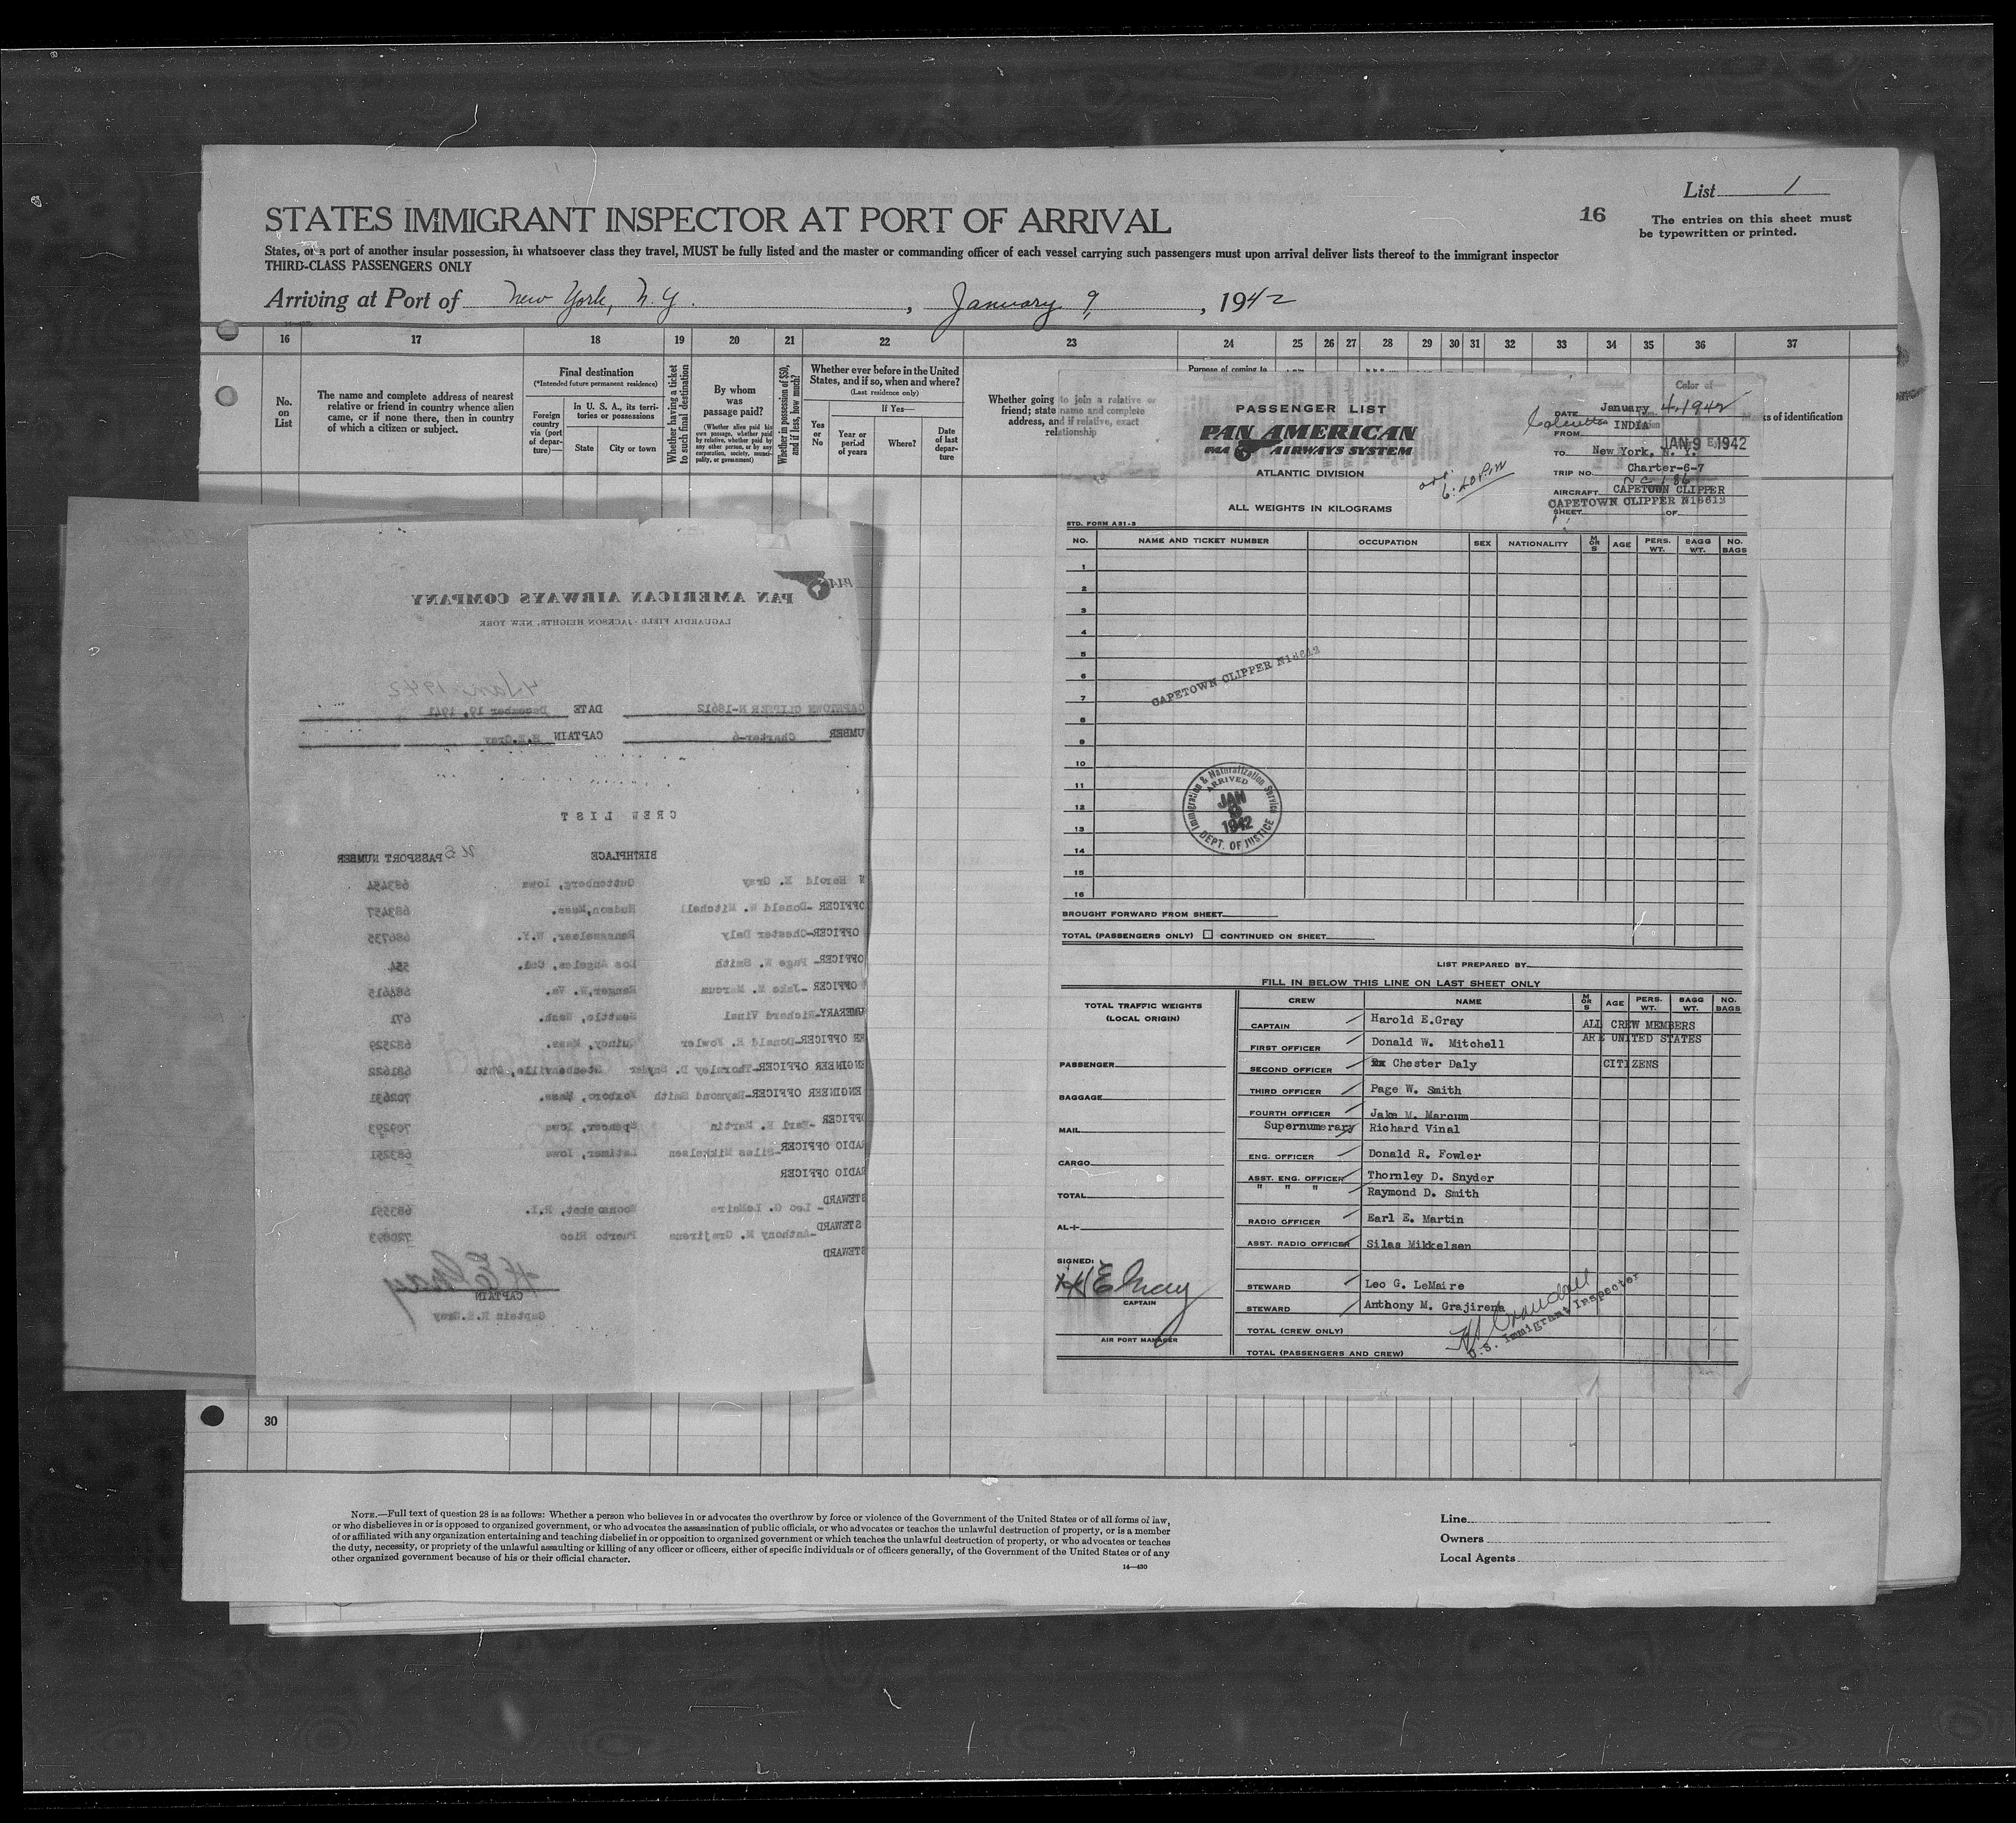 List 1
16
The entries on this sheet must
be typewritten or printed.
STATES IMMIGRANT INSPECTOR AT PORT OF ARRIVAL
States, or a port of another insular possession, in whatsoever class they travel, MUST be fully listed and the master or commanding officer of each vessel carrying such passengers must upon arrival deliver lists thereof to the immigrant inspector
THIRD-CLASS PASSENGERS ONLY
Arriving at Port of New York, N.Y. , January 9, , 1942
16 17 18 19 20 21 22 23 24 25 26 27 28 29 30 31 32 33 34 35 36 37
No.
on
List
The name and complete address of nearest
relative or friend in country whence alien
came, or if none there, then in country
of which a citizen or subject.
Final destination
(*Intended future permanent residence)
Foreign
country
via (port
of depar-
ture)—
In U. S. A., its terri-
tories or possessions
State
City or town
Whether having a ticket
to such final destination
By whom
was
passage paid?
(Whether alien paid his
own passage, whether paid
by relative, whether paid by
any other person, or by any
corporation, society, munici-
pality, or government)
Whether in possession of $50,
and if less, how much?
Whether ever before in the United
States, and if so, when and where?
(Last residence only)
Yes
or
No
If Yes—
Year or
period
of years
Where?
Date
of last
depar-
ture
Whether going to join a relative or
friend; state name and complete
address, and if relative, exact
relationship
Purpose of coming to
Color of—
ks of identification
PAN AMERICAN AIRWAYS COMPANY
LAGUARDIA FIELD - JACKSON HEIGHTS, NEW YORK
4 Jan 1942
CAPETOWN CLIPPER N-18612 DATE December 19, 1941
UMBER Charter-6 CAPTAIN H.E.Gray
CREW LIST
BIRTHPLACE U S PASSPORT NUMBER
Harold E. Gray Guttenberg, Iowa 683454
OFFICER -Donald W. Mitchell Hudson,Mass. 683457
OFFICER-Chester Daly Rensselaer, N.Y. 686735
OFFICER- Page W. Smith Los Angeles, Cal. 554
OFFICER -Jake M. Marcum Ranger,W. Va. 684615
UMERARY-Richard Vinal Seattle, Wash. 671
ER OFFICER-Donald R. Fowler Quincy, Mass. 683529
ENGINEER OFFICER-Thornley D. Snyder Steubenville, Ohio 681622
ENGINEER OFFICER-Raymond Smith Foxboro, Mass. 702631
OFFICER -Earl E. Martin Spencer, Iowa 709293
RADIO OFFICER-Silas Mikkelsen Latimer, Iowa 683251
RADIO OFFICER
STEWARD- Leo G. LeMaire Woonsocket, R.I. 683551
STEWARD -Anthony M. Grajirena Puerto Rico 720893
STEWARD
H E Gray
CAPTAIN
Captain H.E.Gray
PASSENGER LIST
PAN AMERICAN
PAA AIRWAYS SYSTEM
ATLANTIC DIVISION
ALL WEIGHTS IN KILOGRAMS
STD. FORM A31-3
DATE January 4, 1942
FROM Calcutta INDIA
JAN 9 1942
TO New York, N. Y.
TRIP NO. Charter-6-7
NC 186
AIRCRAFT CAPETOWN CLIPPER
CAPETOWN CLIPPER N18612
SHEET OF
NO. NAME AND TICKET NUMBER OCCUPATION SEX NATIONALITY M OR S AGE PERS. WT. BAGG WT. NO. BAGS
1
2
3
4
5
6
7
8
9
10
11
12
13
14
15
16
CAPETOWN CLIPPER N18612
Immigration & Naturalization Service
ARRIVED
JAN
1942
DEPT. OF JUSTICE
BROUGHT FORWARD FROM SHEET
TOTAL (PASSENGERS ONLY) CONTINUED ON SHEET
LIST PREPARED BY
FILL IN BELOW THIS LINE ON LAST SHEET ONLY
TOTAL TRAFFIC WEIGHTS
(LOCAL ORIGIN)
PASSENGER
BAGGAGE
MAIL
CARGO
TOTAL
AL-I-
SIGNED:
H E Gray
CAPTAIN
AIR PORT MANAGER
CREW NAME M OR S AGE PERS. WT. BAGG WT. NO. BAGS
CAPTAIN Harold E.Gray
FIRST OFFICER Donald W. Mitchell
SECOND OFFICER Chester Daly
THIRD OFFICER Page W. Smith
FOURTH OFFICER Jake M. Marcum
Supernumerary Richard Vinal
ENG. OFFICER Donald R. Fowler
ASST. ENG. OFFICER Thornley D. Snyder
" " " Raymond D. Smith
RADIO OFFICER Earl E. Martin
ASST. RADIO OFFICER Silas Mikkelsen
STEWARD Leo G. LeMaire
STEWARD Anthony M. Grajirena
TOTAL (CREW ONLY)
TOTAL (PASSENGERS AND CREW)
ALL CREW MEMBERS
ARE UNITED STATES
CITIZENS
Crandall
U.S. Immigrant Inspector
30
NOTE.—Full text of question 28 is as follows: Whether a person who believes in or advocates the overthrow by force or violence of the Government of the United States or of all forms of law,
or who disbelieves in or is opposed to organized government, or who advocates the assassination of public officials, or who advocates or teaches the unlawful destruction of property, or is a member
of or affiliated with any organization entertaining and teaching disbelief in or opposition to organized government or which teaches the unlawful destruction of property, or who advocates or teaches
the duty, necessity, or propriety of the unlawful assaulting or killing of any officer or officers, either of specific individuals or of officers generally, of the Government of the United States or of any
other organized government because of his or their official character.
14—430
Line
Owners
Local Agents